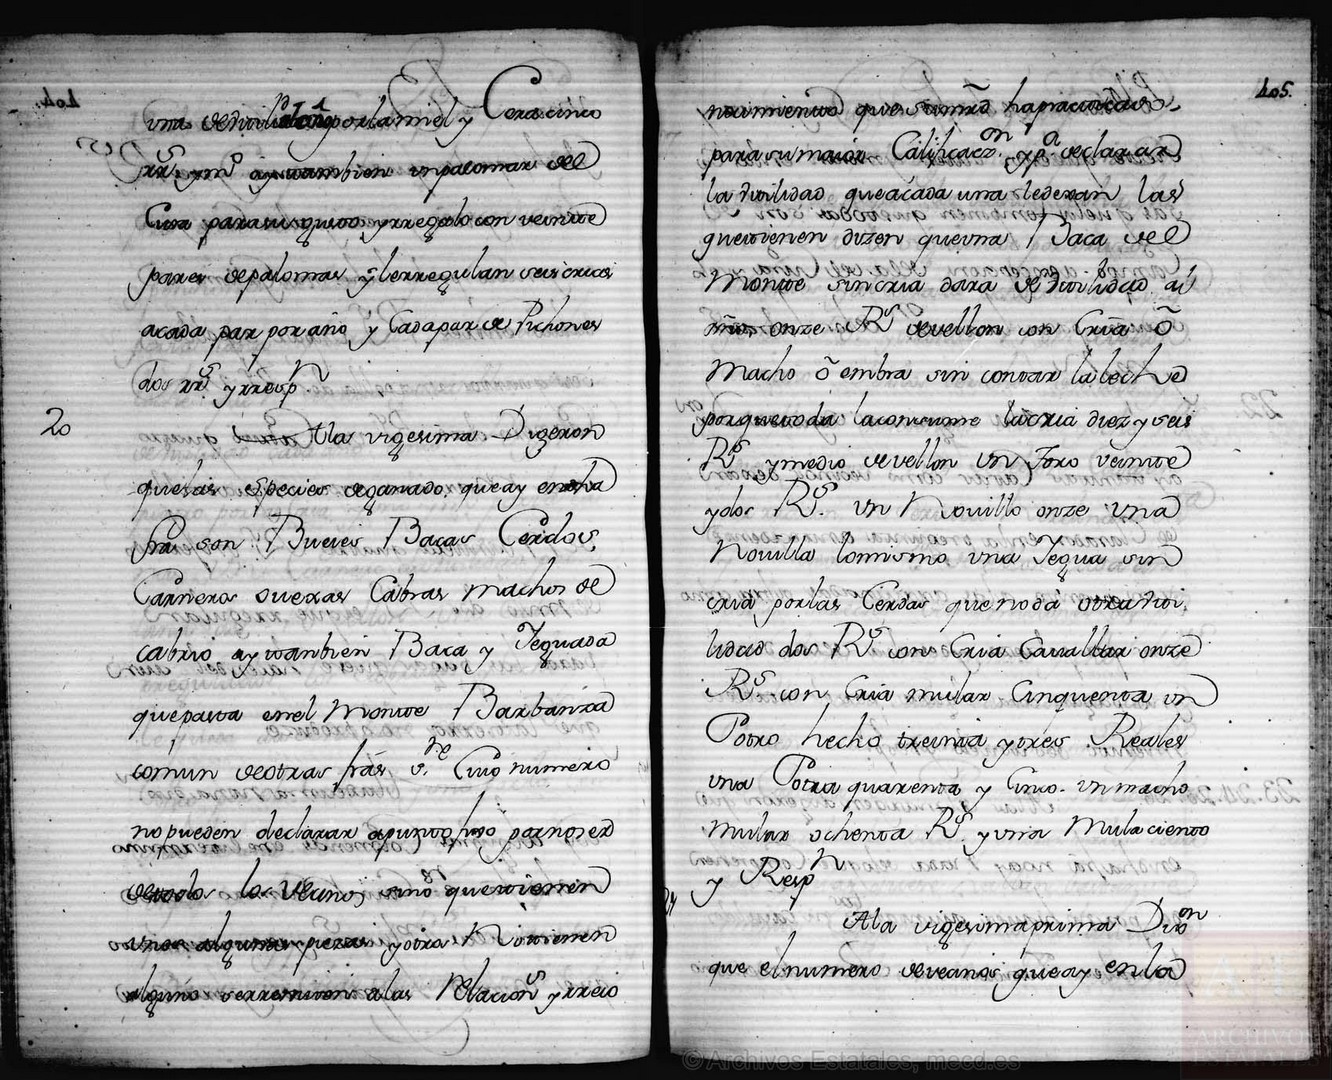 404.
una de utilidad al año por la miel y Cera cinco
rr.s y m.o ay tambien un palomar del
Cura para su gusto y rregalo con veinte
pares de palomas y le rregulan seis crias
a cada par por año y Cada par de Pichones
dos rr.s y rresp.n
20 A la vigesima Digeron
que las especies de ganado que ay en dha
fra son Bueies Bacas Cerdos,
Carneros ouexas Cabras machos de
cabrio ay tambien Baca y Yeguada
que pasta en el Monte Barbanza
comun de otras frás Cuio numero
no pueden declarar a punto fijo por no ser
de todos los Vecinos sino que tienen
unos algunas piezas y otros No tienen
alguno se rremiten a las Relacion.s y rreco
405.
nocimiento que su mrd ha practicado
para su maior Calificaz.on y p.a declarar
la utilidad que a cada una le dexan las
que tienen dizen que una Baca del
Monte sin cria dara de utilidad al
año onze R.s de vellon con Cria ô
Macho ô embra sin contar la leche
porque toda la consume la cria diez y seis
R.s y medio de vellon Un Toro veinte
y dos R.s Un Novillo onze una
Novilla lo mismo una Yegua sin
cria por las Cerdas que no da otra uti
lidad dos R.s con Cria Cavallar onze
R.s con Cria mular Cinquenta un
Potro hecho treinta y tres Reales
una Potra quarenta y Cinco un macho
mular ochenta R.s y una Mula ciento
y Resp.n
21 A la vigesima prima Dix.on
que el numero de vecinos que ay en la
© Archivos Estatales, mecd.es
ARCHIVOS
ESTATALES